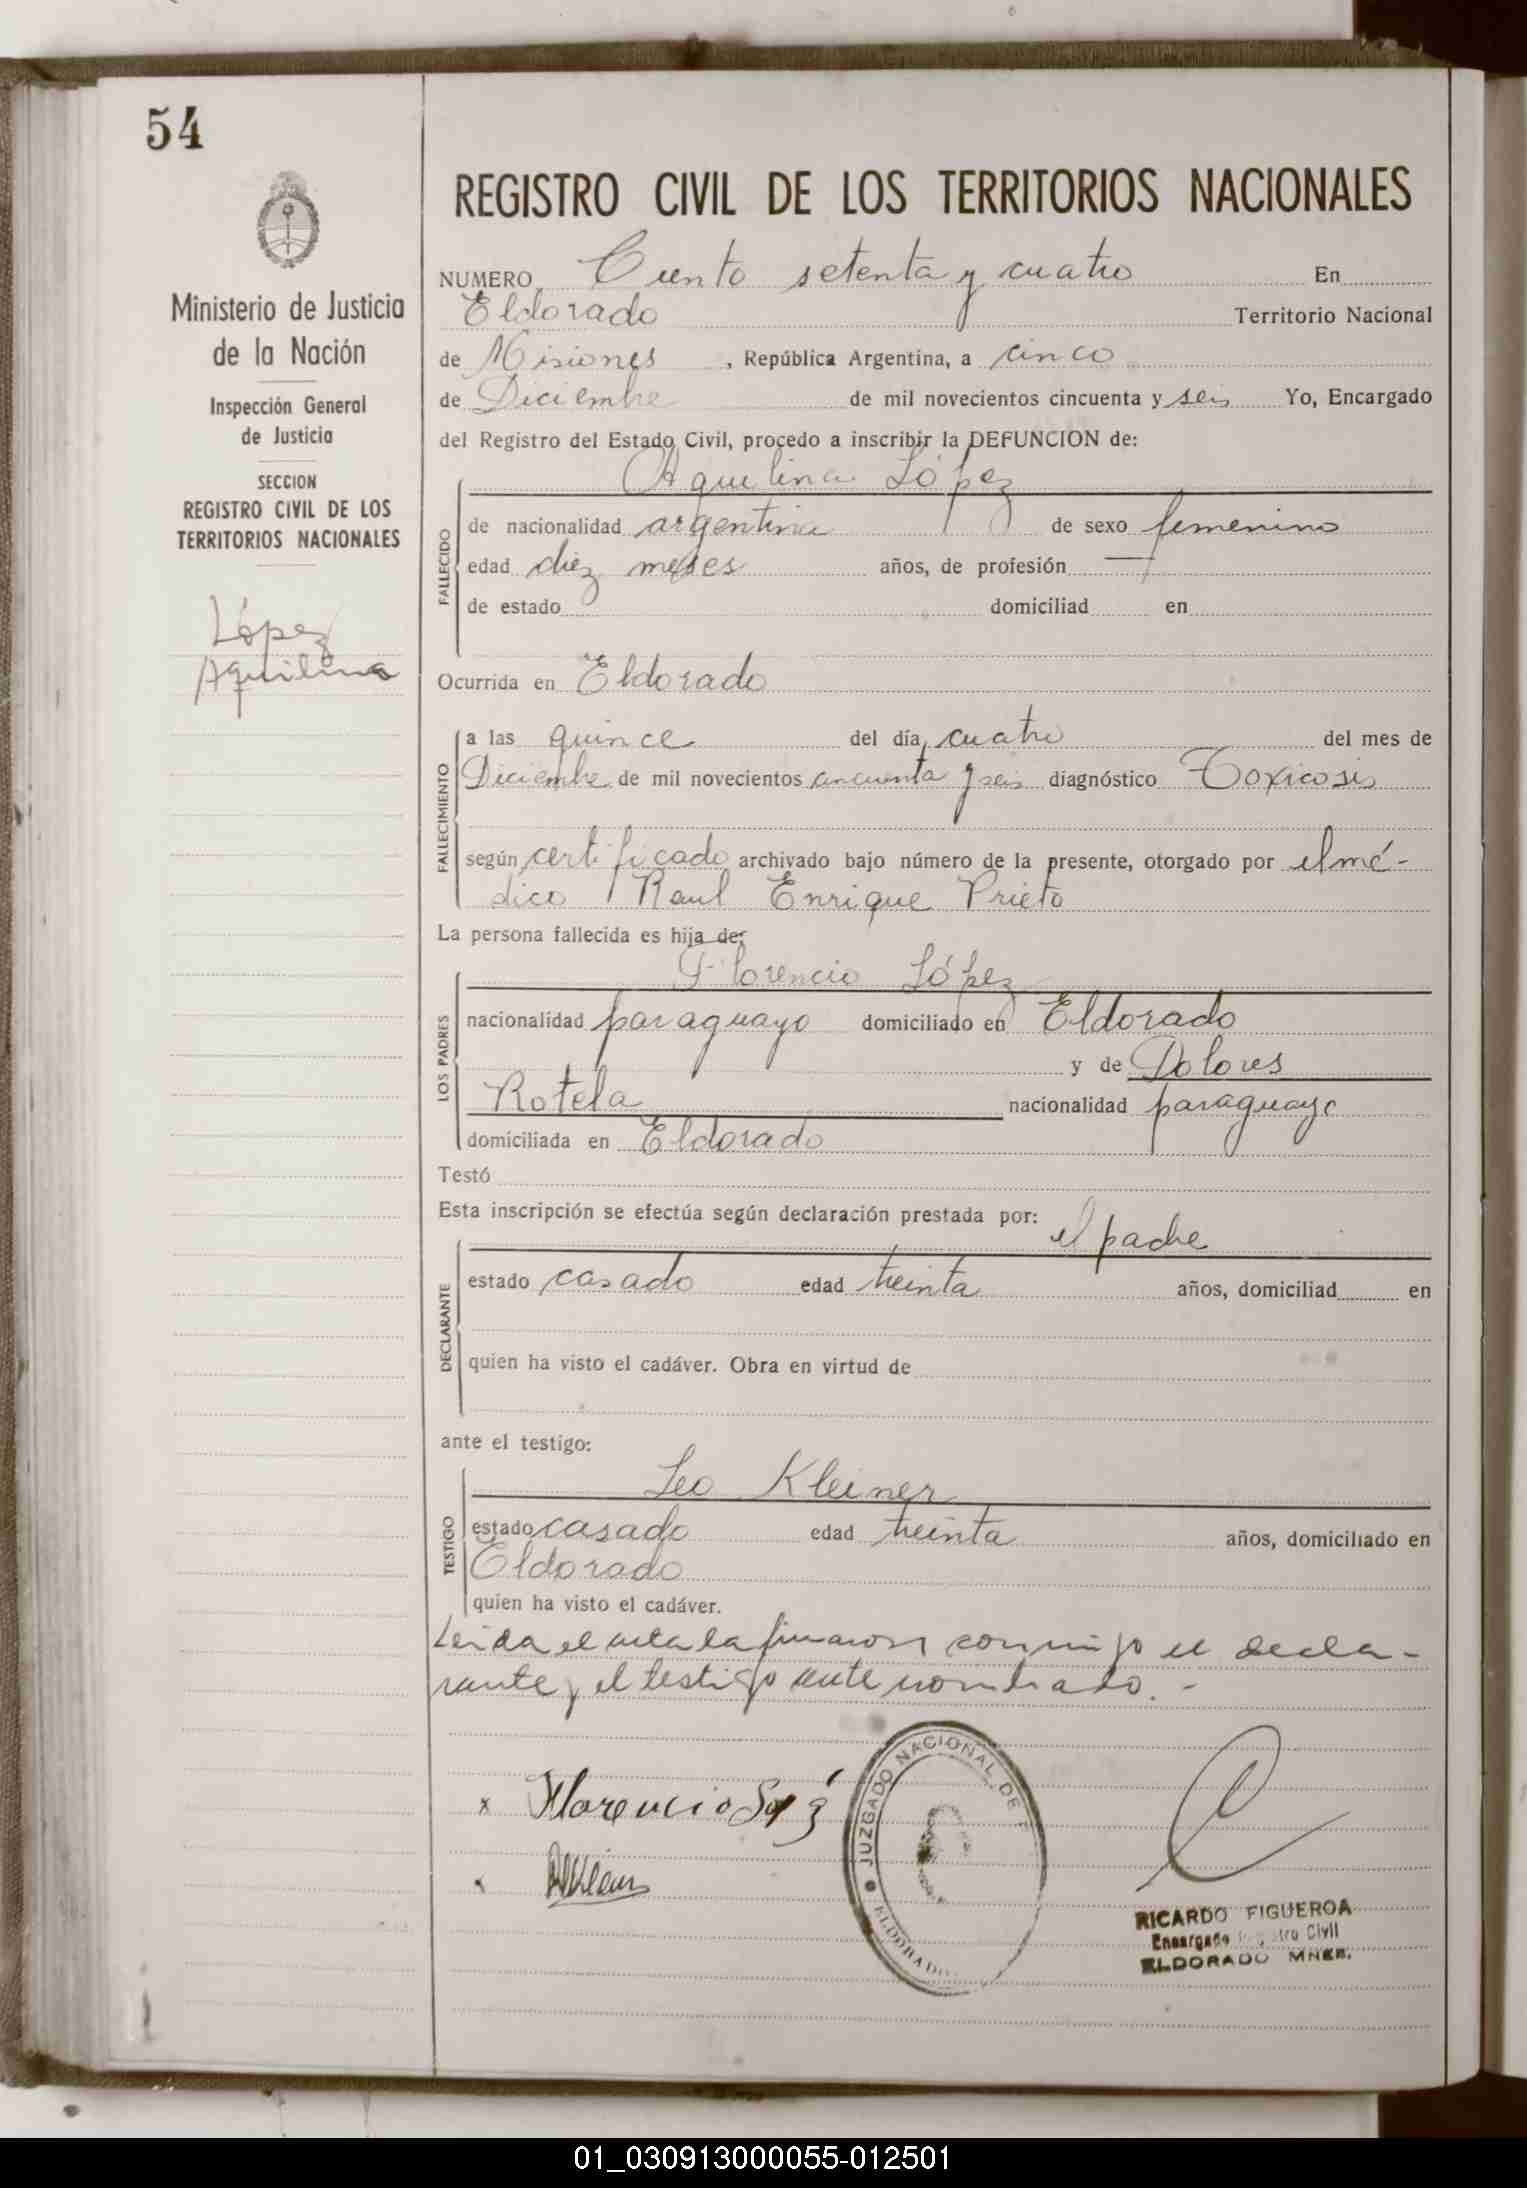 54
REGISTRO CIVIL DE LOS TERRITORIOS NACIONALES
Ministerio de Justicia
de la Nación
Inspección General
de Justicia
SECCION
REGISTRO CIVIL DE LOS
TERRITORIOS NACIONALES
López
Aquilina
NUMERO Ciento setenta y cuatro En
Eldorado Territorio Nacional
de Misiones, República Argentina, a cinco
de Diciembre de mil novecientos cincuenta y seis Yo, Encargado
del Registro del Estado Civil, procedo a inscribir la DEFUNCION de:
Aquilina López
FALLECIDO
de nacionalidad argentina de sexo femenino
edad diez meses años, de profesión —
de estado domiciliad en
Ocurrida en Eldorado
FALLECIMIENTO
a las quince del día cuatro del mes de
Diciembre de mil novecientos cincuenta y seis diagnóstico Toxicosis
según certificado archivado bajo número de la presente, otorgado por el mé-
dico Raul Enrique Prieto
La persona fallecida es hija de:
LOS PADRES
Florencio López
nacionalidad paraguayo domiciliado en Eldorado
y de Dolores
Rotela nacionalidad paraguayo
domiciliada en Eldorado
Testó
Esta inscripción se efectúa según declaración prestada por:
el padre
DECLARANTE
estado casado edad treinta años, domiciliad en
quien ha visto el cadáver. Obra en virtud de
ante el testigo:
TESTIGO
Leo Kleiner
estado casado edad treinta años, domiciliado en
Eldorado
quien ha visto el cadáver.
Leida el acta la firmaron conmigo el decla-
rante y el testigo ante nombrado. -
x Florencio
x
JUZGADO NACIONAL DE
ELDORADO
RICARDO FIGUEROA
Encargado Registro Civil
ELDORADO MNES.
01_030913000055-012501